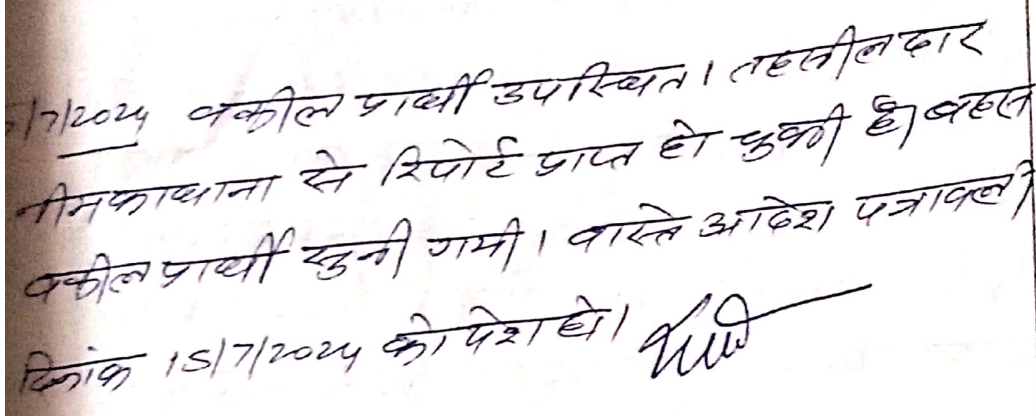 /7/2024 वकील प्रार्थी उपस्थित। तहसीलदार
नीमकाथाना से रिपोर्ट प्राप्त हो चुकी है। बहस
वकील प्रार्थी सुनी गयी। वास्ते आदेश पत्रावली
दिनांक 15/7/2024 को पेश हो।